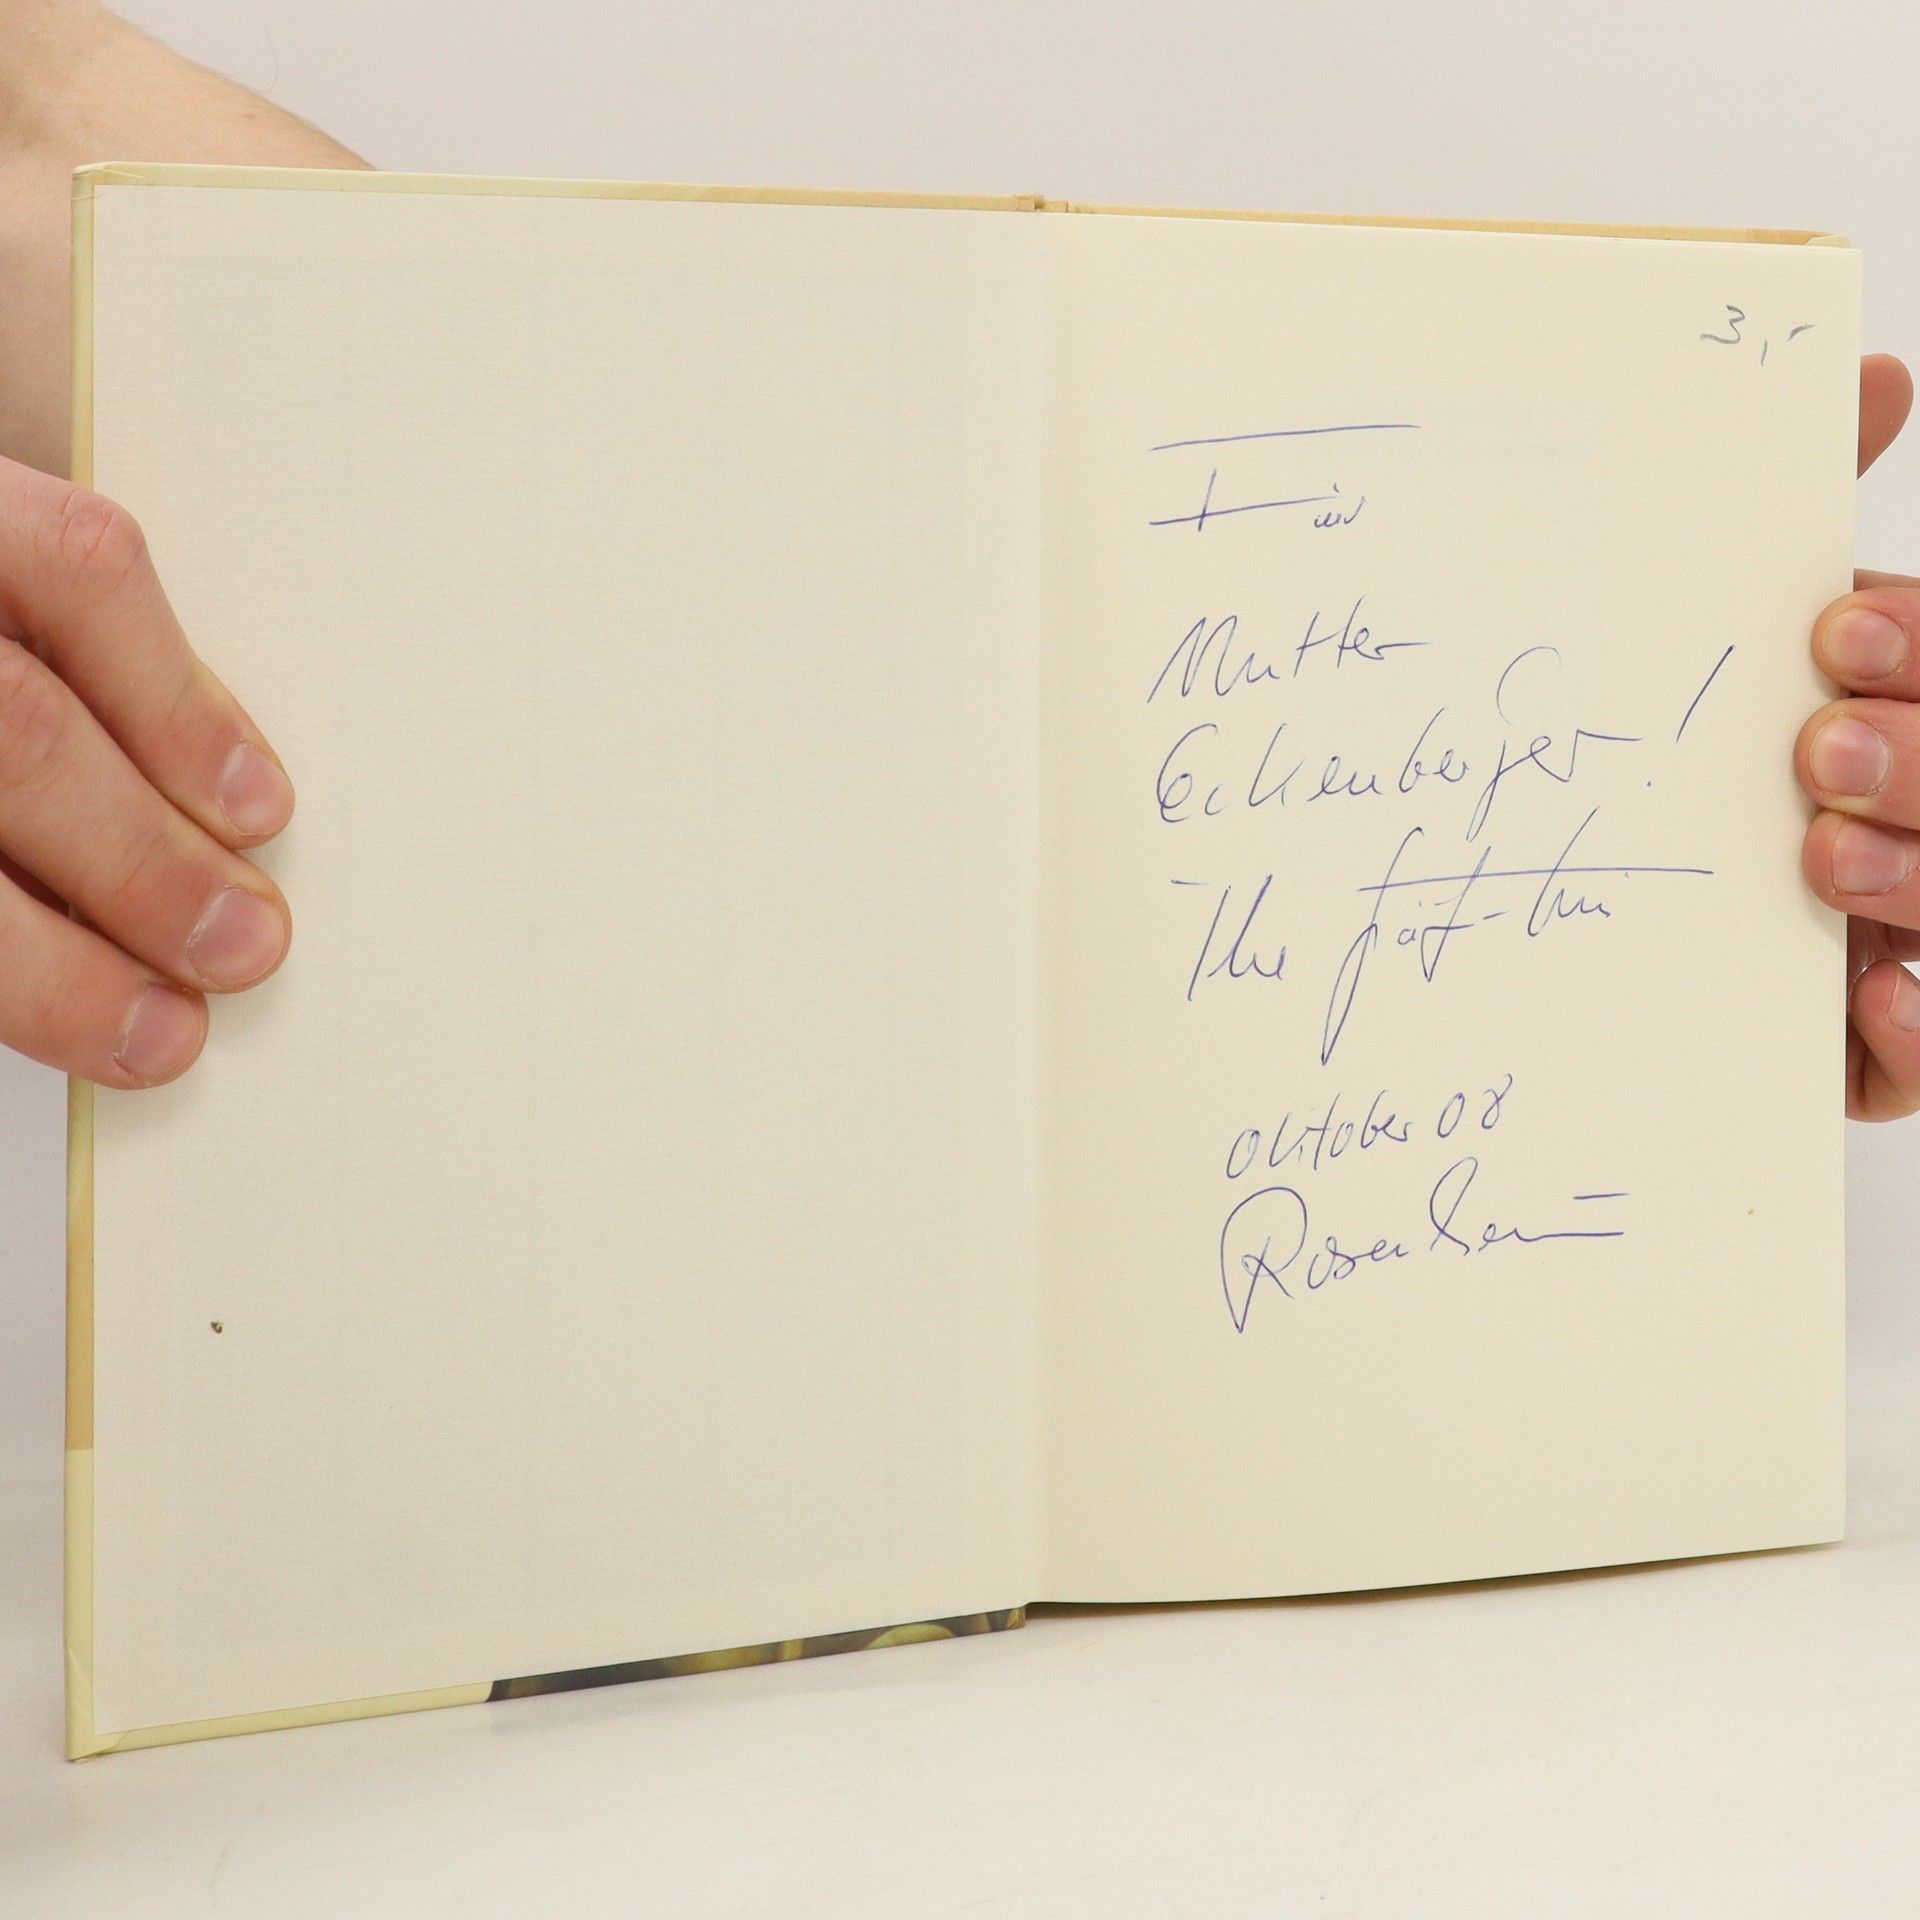 3,-
Für
Mutter
Eckenberger!
Ihr
Oktober 08
Rosenheim